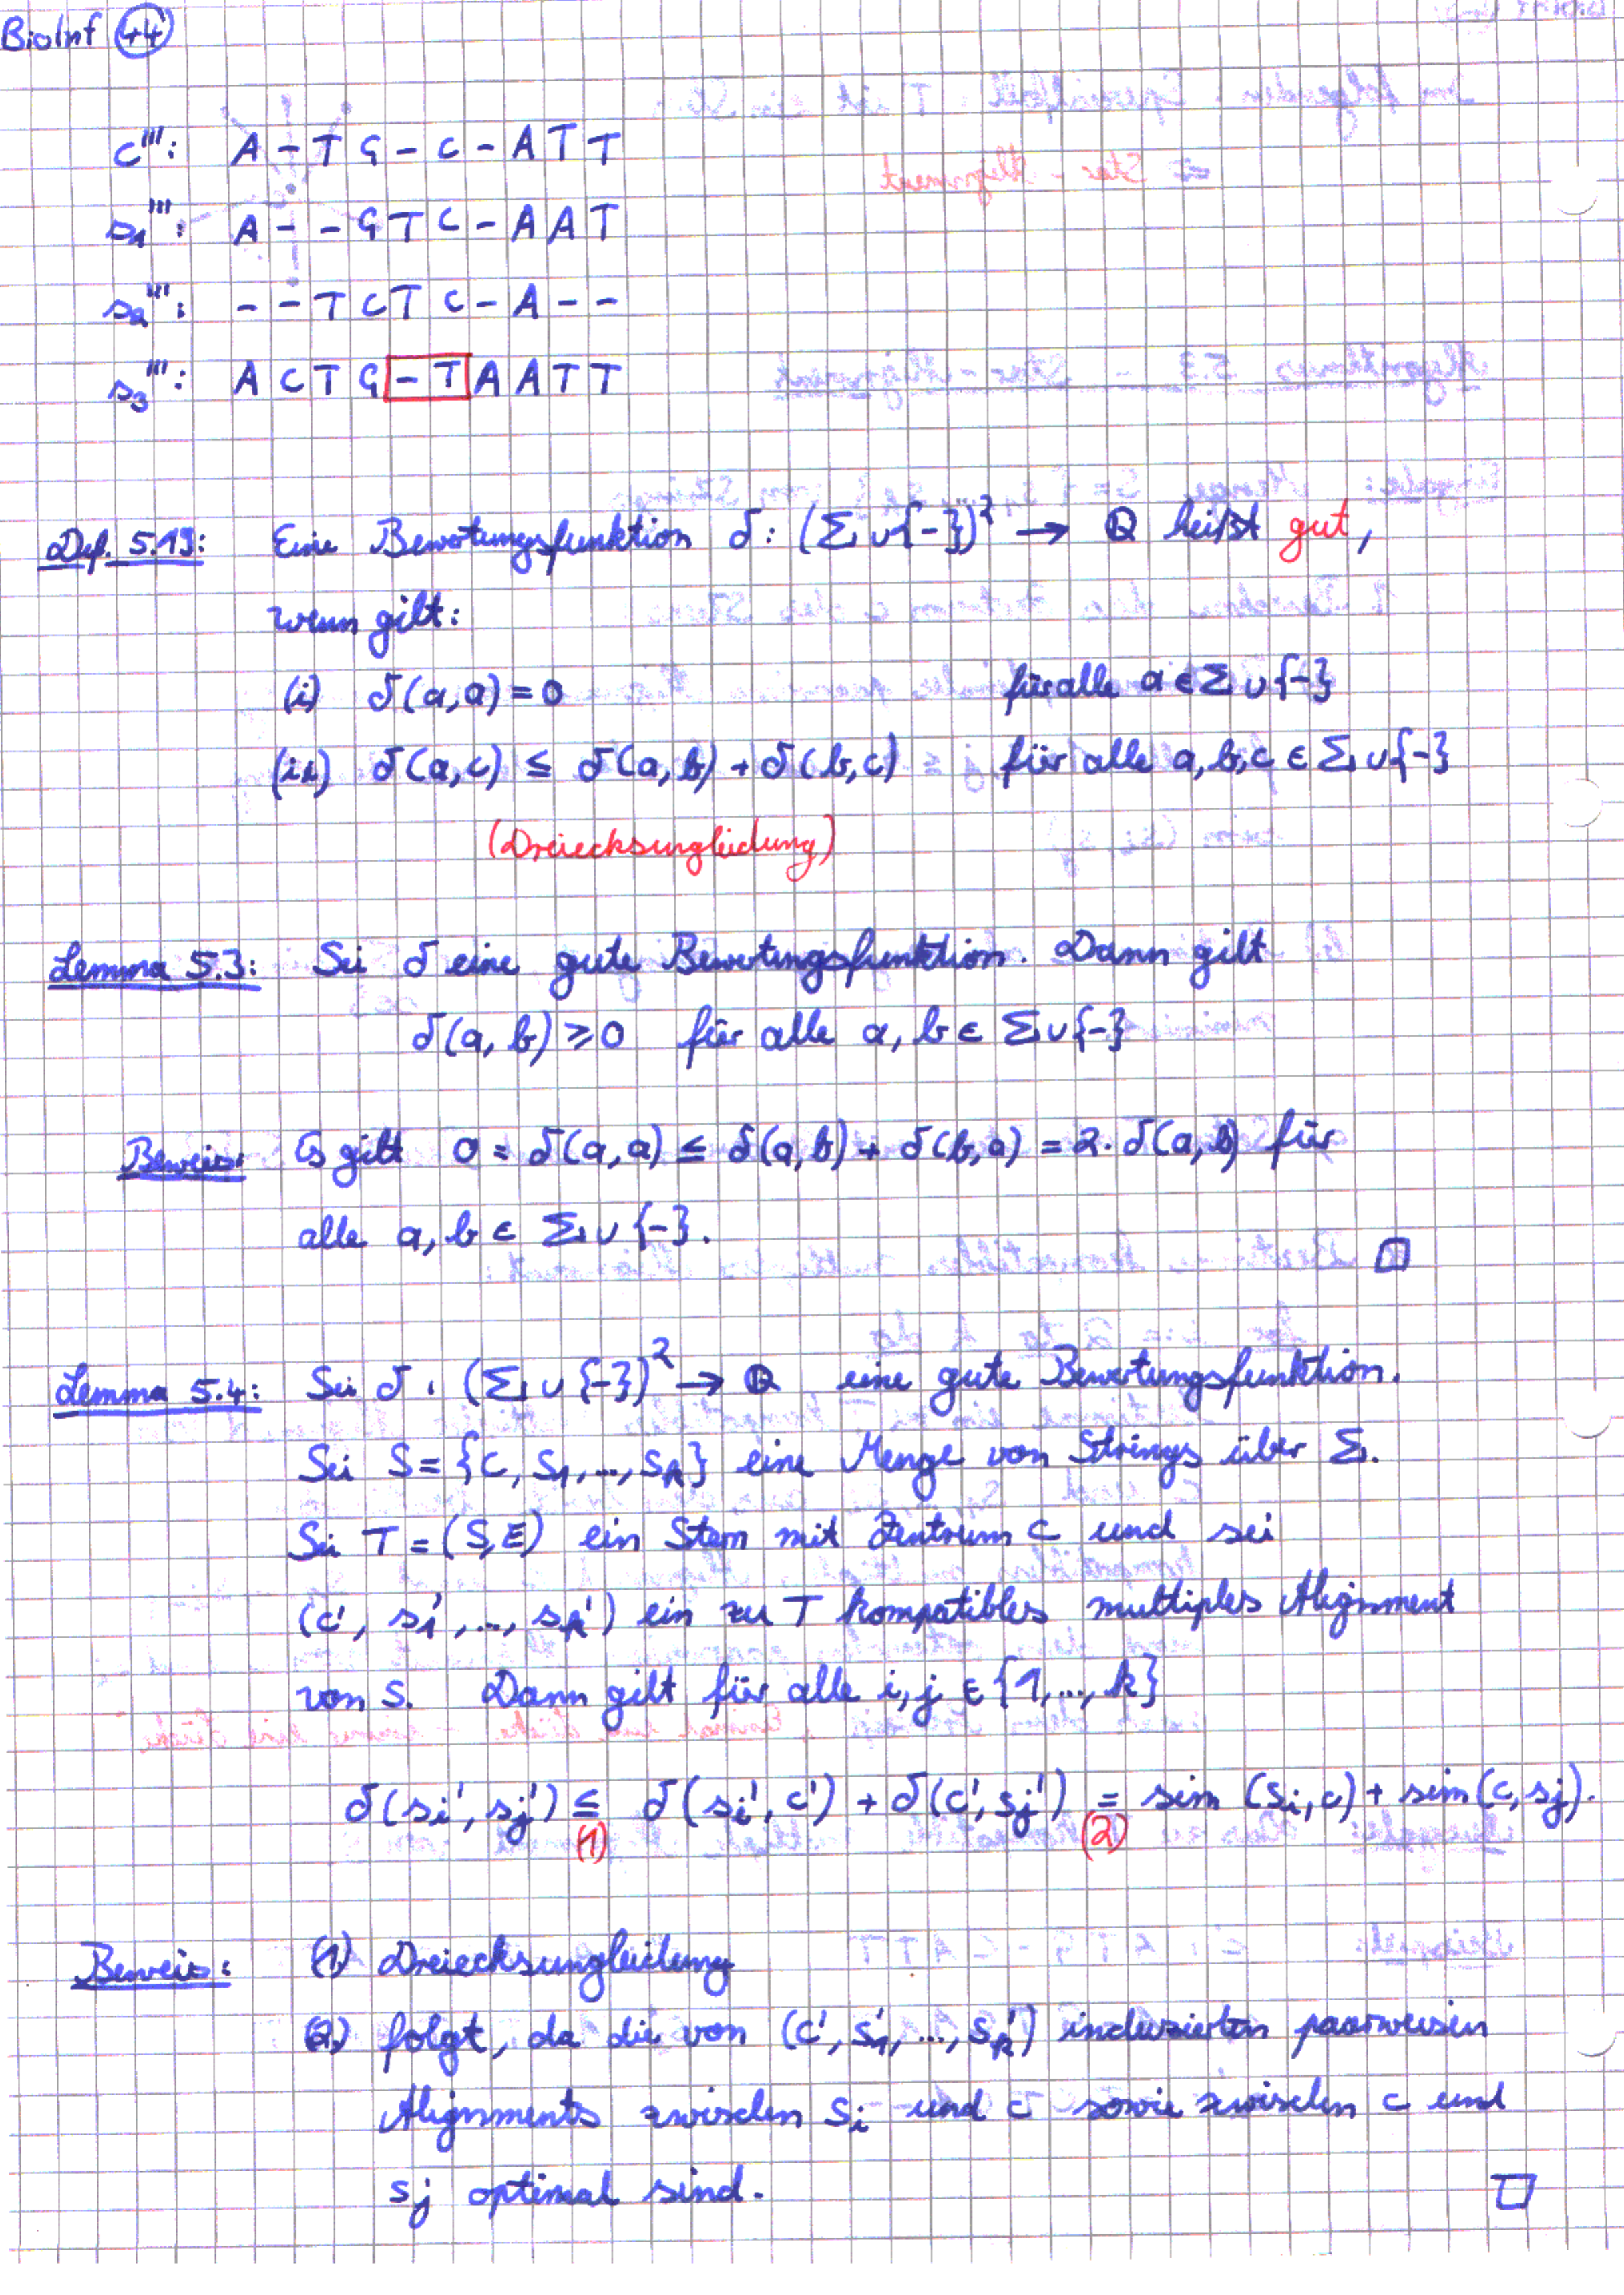 BioInf 44
c''': A - T G - C - A T T
s₁''': A - - G T C - A A T
s₂''': - - T C T C - A - -
s₃''': A C T G - T A A T T
Def. 5.19: Eine Bewertungsfunktion δ: (Σ ∪ {-})² → ℚ heißt gut,
wenn gilt:
(i) δ(a,a) = 0 für alle a ∈ Σ ∪ {-}
(ii) δ(a,c) ≤ δ(a,b) + δ(b,c) für alle a,b,c ∈ Σ ∪ {-}
(Dreiecksungleichung)
Lemma 5.3: Sei δ eine gute Bewertungsfunktion. Dann gilt
δ(a,b) ≥ 0 für alle a, b ∈ Σ ∪ {-}
Beweis: Es gilt 0 = δ(a,a) ≤ δ(a,b) + δ(b,a) = 2·δ(a,b) für
alle a, b ∈ Σ ∪ {-}. □
Lemma 5.4: Sei δ: (Σ ∪ {-})² → ℚ eine gute Bewertungsfunktion.
Sei S = {c, s₁,..., sₖ} eine Menge von Strings über Σ.
Sei T = (S,E) ein Stern mit Zentrum c und sei
(c', s₁',..., sₖ') ein zu T kompatibles multiples Alignment
von S. Dann gilt für alle i,j ∈ {1,..., k}
δ(sᵢ', sⱼ') ≤ δ(sᵢ', c') + δ(c', sⱼ') = sim (sᵢ,c) + sim(c, sⱼ).
(1) (2)
Beweis: (1) Dreiecksungleichung
(2) folgt, da die von (c', s₁',..., sₖ') induzierten paarweisen
Alignments zwischen sᵢ und c sowie zwischen c und
sⱼ optimal sind. □